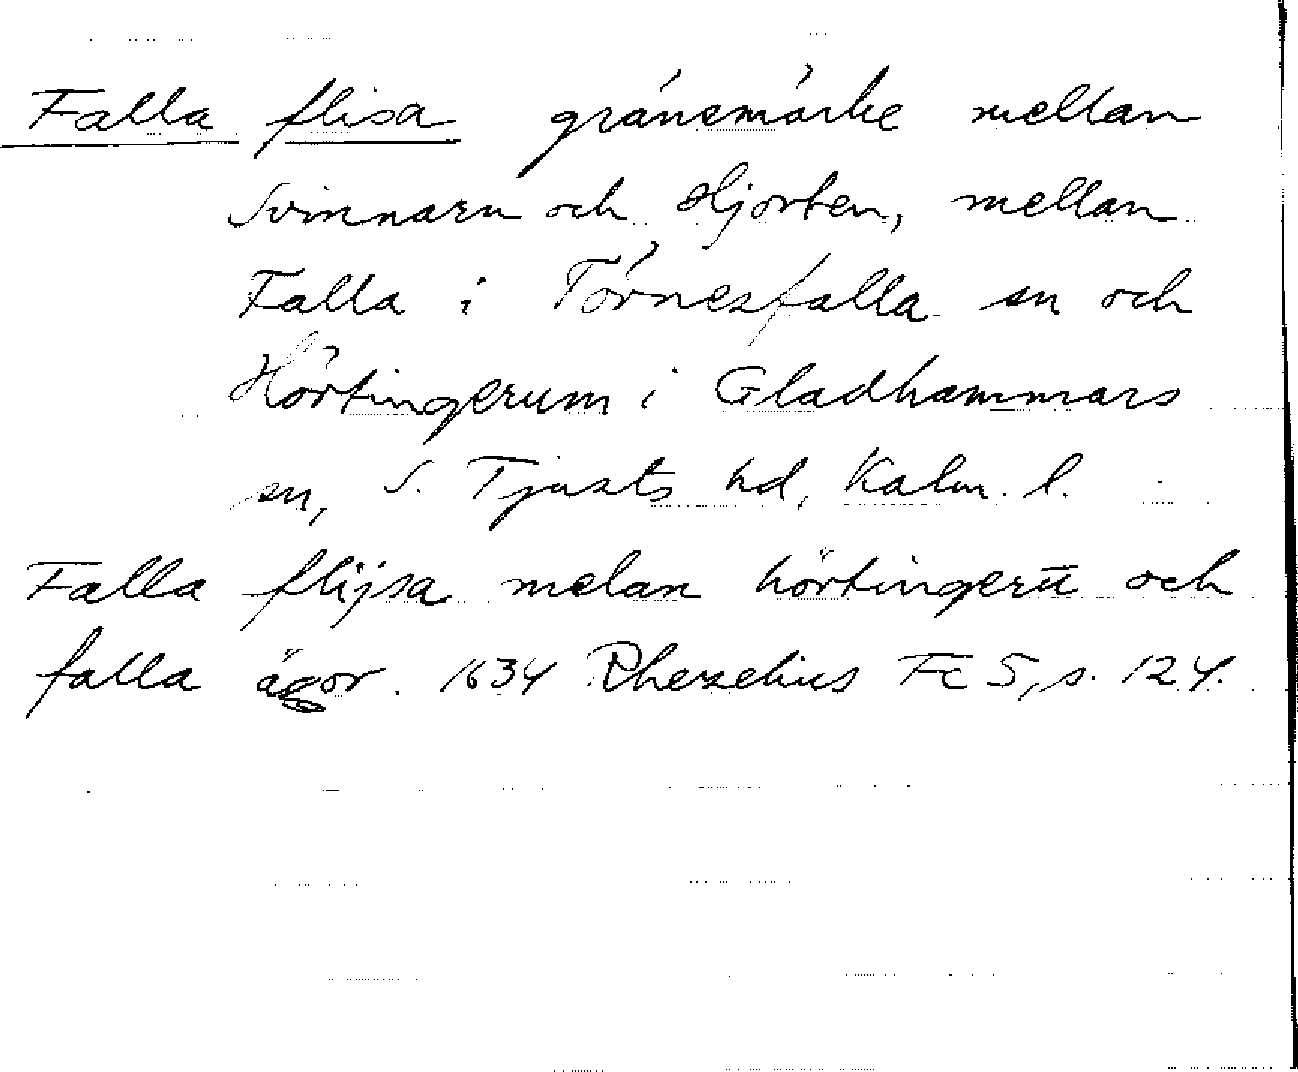 Falla flisa gränsmärke mellan
Svinnarn och Hjorten, mellan
Falla i Törnesfalla sn och
Hörtingerum i Gladhammars
sn, S. Tjusts hd, Kalm. l.
Falla flijsa melan hörtingerū och
falla ägor. 1634 Rhezelius Fc 5, s. 124.